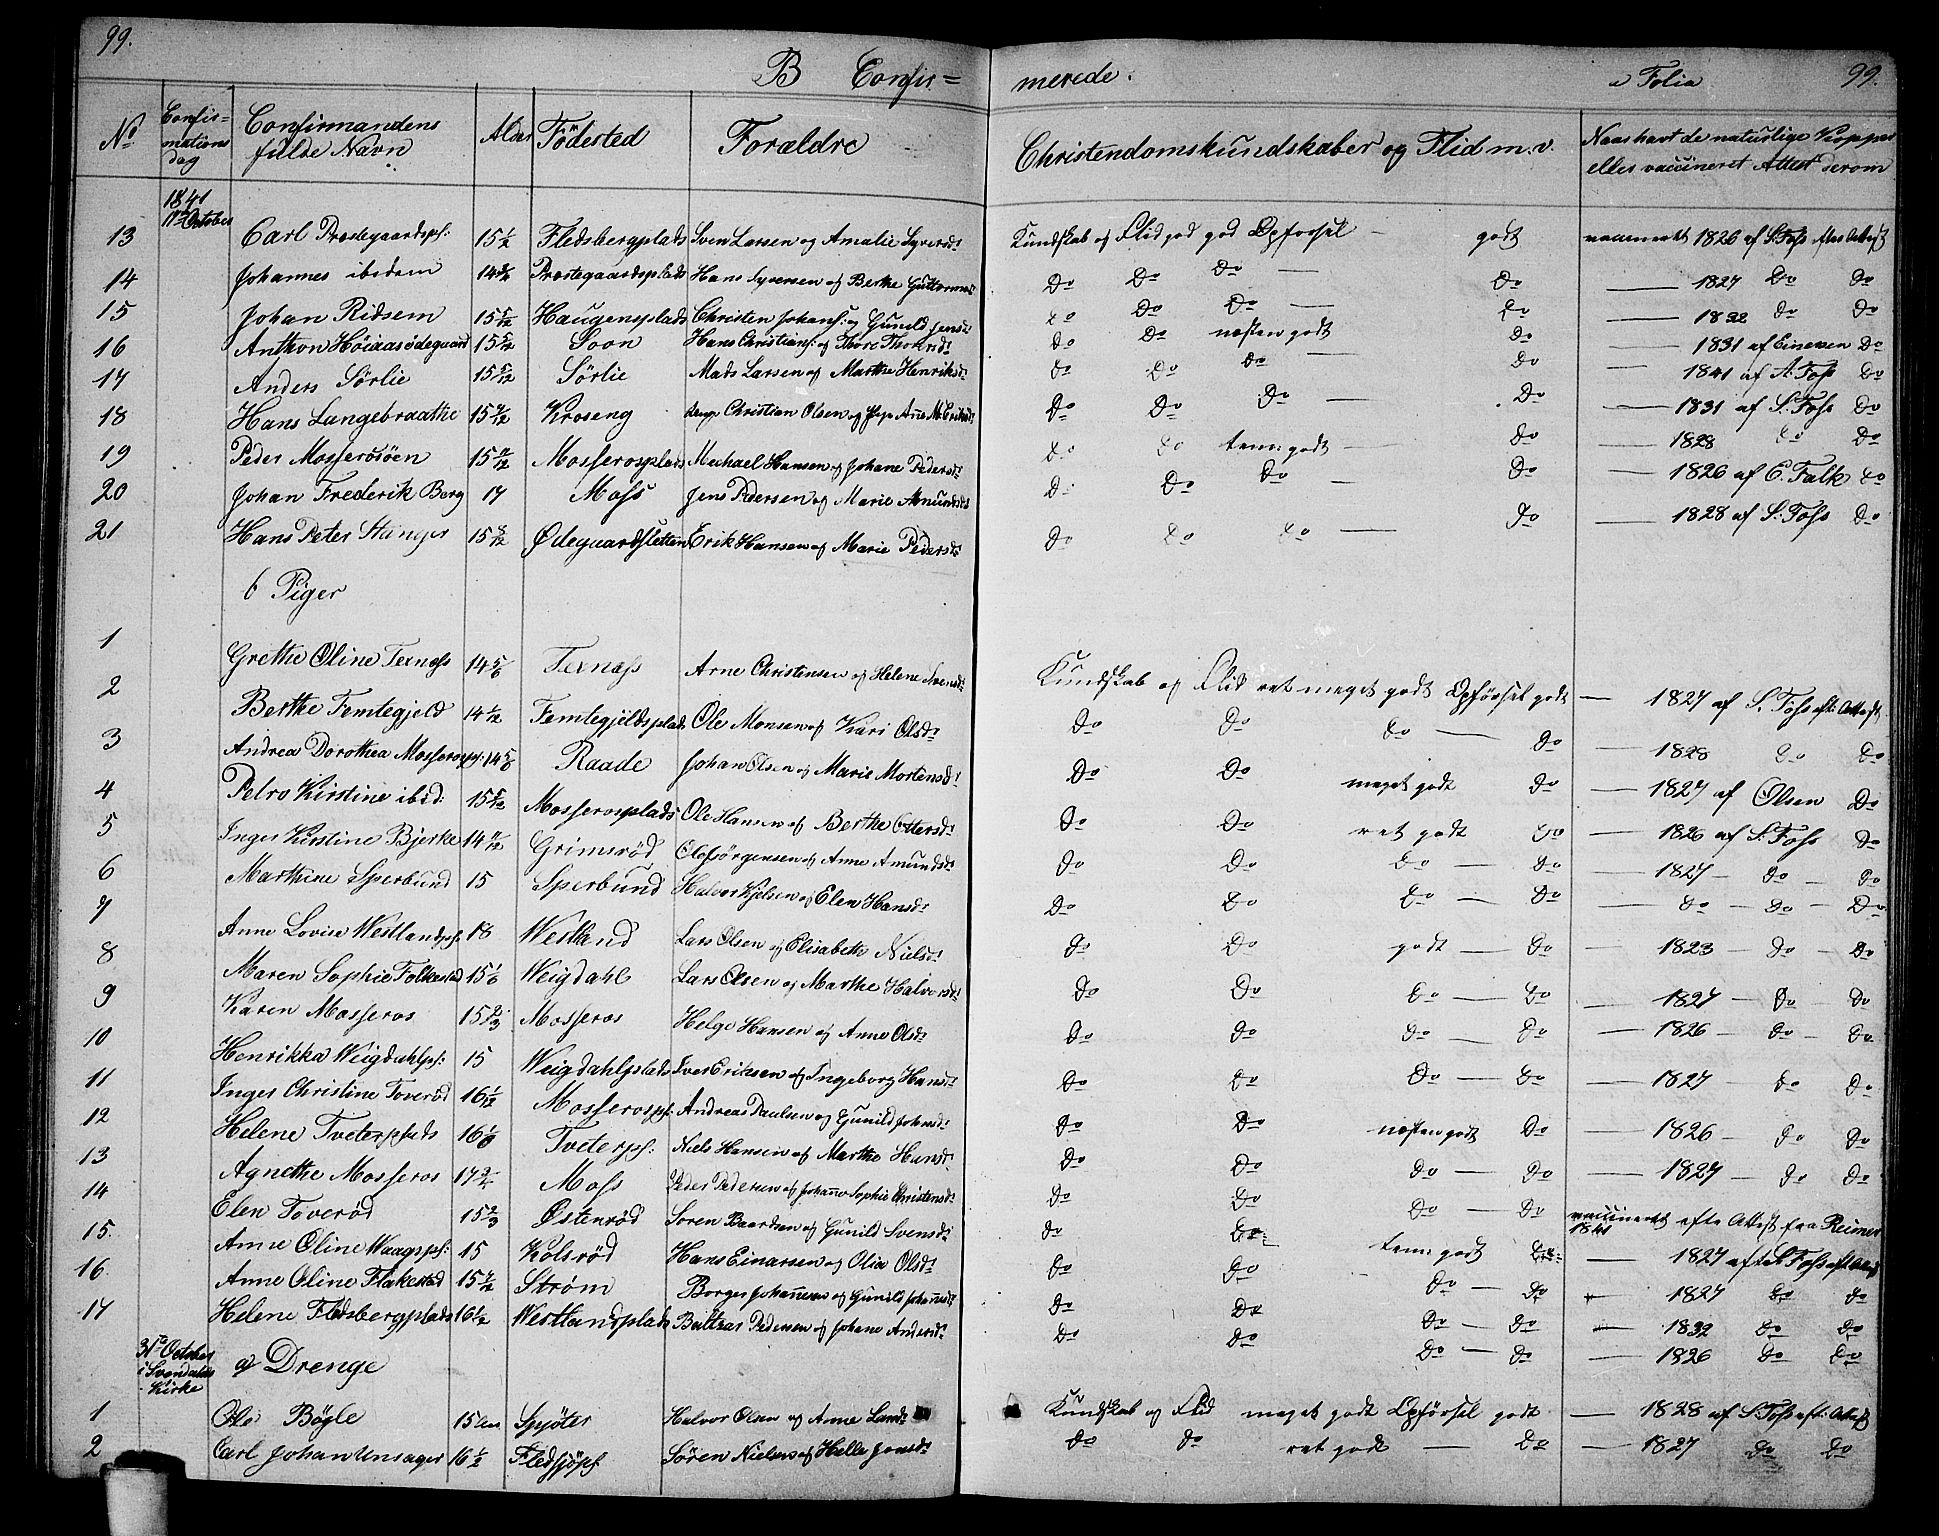 99.
B Confir=
merede.
Folia 99.
No
Confir=
mations
dag
Confirmandens
fulde Navn
Alder
Födested
Forældre
Christendomskundskaber og Flid m.v.
Naar havt de naturlige Kopper
eller vaccineret Attest derom
1841
October
13 Carl Præstegaardspl: 15½ Fledsbergplads Sven Larsen og Amalie Syversd: Kundskab og Flid god god Opførsel - godt vaccineret 1826 af S. Foss efter Attest
14 Johannes ibidem Præstegaardsplads Hans Syversen og Berthe Guttormsd: Do Do Do — Do — 1827 Do Do
15 Johan Ridsem 15 Haugensplads Christen Johans: og Gunild Jensd: Do Do Do — Do — Do Do
16 Anthon 15 Soon Hans Christians: og Thore Do Do næsten godt Do — 1831 af Einersen Do
17 Anders Sörlie 15 Sörlie Mads Larsen og Marthe Henriksd: Do Do Do — Do — 1841 af A. Foss Do
18 Hans Langebraathe 15 Kroseng Christian Olsen og Do Do Do — Do — 1831 af S. Foss Do
19 Peder Mosserosöen 15 Mosserosplads Michael Hansen og Johane Pedersd: Do Do tem: godt — Do — 1828 Do Do
20 Johan Frederik Berg 17 Moss Jens Pedersen og Marie Amundsd: Do Do Do — Do — 1826 af C. Falk Do
21 Hans Peter Stanger 15 Ödegaardsletten Erik Hansen og Marie Pedersd: Do Do Do — Do — 1828 af S. Foss Do
b Piger
1 Grethe Oline Ternæss 14 5/6 Ternæss Arne Christensen og Helene Svensd: Kundskab og Flid ret meget godt Opförsel godt — 1827 af S. Foss eft: Attest
2 Berthe Femtegjeld 14 Femtegjeldsplads Ole Monsen og Kari Olsd: Do Do Do — Do — 1828 Do Do
3 Andrea Dorothea Mosserospl: 14 5/6 Raade Johan Olsen og Marie Mortensd: Do Do meget godt Do — 1827 af Olsen Do
4 Petro Kirstine ibid: 15 Mosserosplads Ole Hansen og Berthe Ottersd: Do Do ret godt Do — 1826 af S. Foss Do
5 Inger Kirstine Bjerke 14 Grimsröd Olof Jörgensen og Anne Amundsd: Do Do Do — Do — 1827 — Do — Do
6 Marthine Sperbund 15 Sperbund Halvor Kjelsen og Elen Hansd: Do Do Do — Do — Do — Do — Do
7 Anne Lovise Westlandspl: 18 Westland Lars Olsen og Elisabeth Nielsd: Do Do godt — Do — 1823 — Do — Do
8 Maren Sophie Folkestad 15 1/6 Weigdahl Lars Olsen og Marthe Halvorsd: Do Do Do — Do — 1827 — Do — Do
9 Karen Mosseros 15 2/3 Mosseros Helge Hansen og Anne Olsd: Do Do Do — Do — 1826 — Do — Do
10 Henrikka Weigdahlspl: 15 Weigdahlsplads Iver Eriksen og Ingeborg Hansd: Do Do Do — Do — 1827 — Do — Do
11 Inger Christine Toveröd 16 1/12 Mosserospl: Andreas Paulsen og Gunild Johnsd: Do Do næsten godt Do — 1826 — Do Do
12 Helene Tveterplads 16 1/6 Tveterpl: Niels Hansen og Marthe Hansd: Do Do Do — Do — 1827 — Do Do
13 Agnethe Mosseros 17 Moss Peder Pedersen og Johanne Sophie Christensd: Do Do Do — Do vaccineret 1841 efter Attest fra Reimer
14 Elen Toveröd 15 2/3 Östenröd Soren Baardsen og Gunild Svensd: Do Do tem: godt Do — 1827 efter S. Foss eft: Attest
15. Anne Oline Waagspl: 15 Kolsröd Hans Einarsen og Olia Olsd: Do Do Do — Do 1827 Do Do
16. Anne Oline Flakestad 15 Ström Borger Johannesen og Gunild Johannesd: Do Do Do — Do — 1832 Do Do
17 Helene Fledsbergplads 16½ Westlandsplads Baltzar Pedersen og Johane Andersd: Do Do Do — Do — 1826 Do Do
31te October
i Svendalens
Kirke
a) Drenge
1 Ole Bögle 15 Spjöter Halvor Olsen og Anne Larsd: Kundskab og Flid meget godt Opförsel godt — 1828 af S. Foss eft: Attest
2 Carl Johan Unsager 16½ Fledsjöpl: Sören Nielsen og Helle Jensd: Do Do ret godt — Do — 1827 Do Do